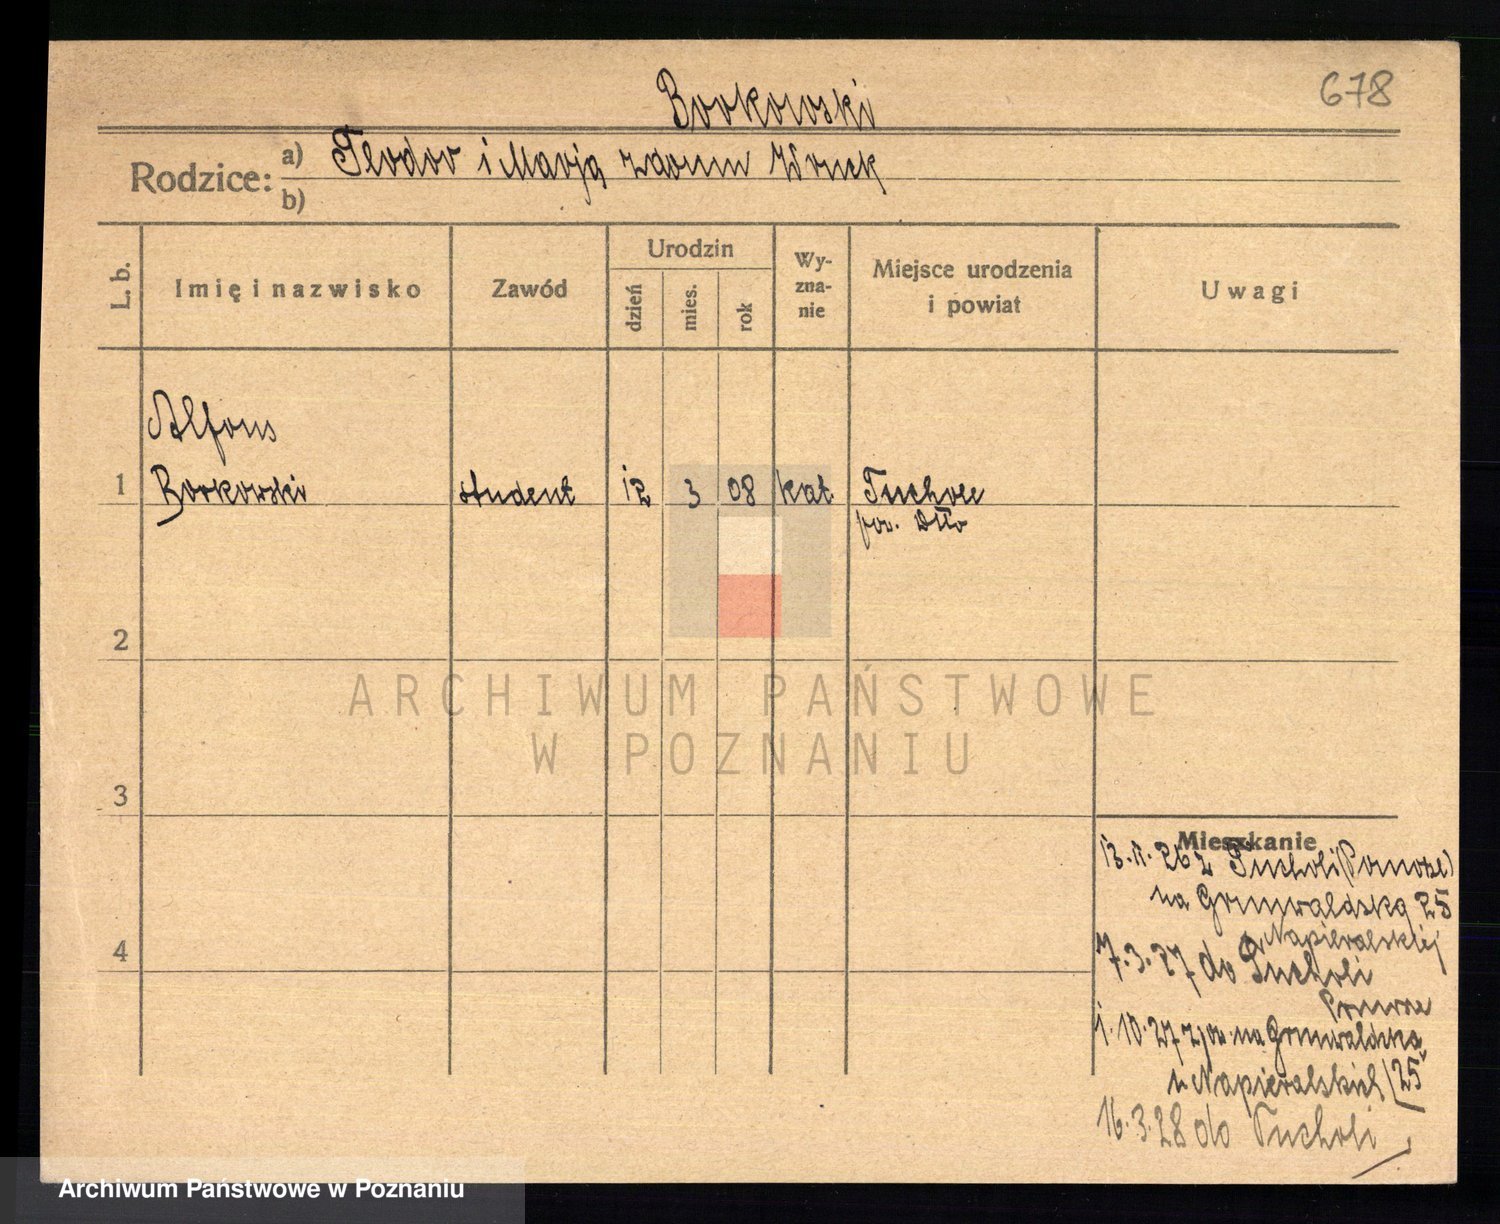 678
Borkowski
Rodzice:
a) Teodor i Marja z domu Wruck
b)
L. b.
Imię i nazwisko
Zawód
Urodzin
dzień
mies.
rok
Wy-
zna-
nie
Miejsce urodzenia
i powiat
Uwagi
Alfons
1 Borkowski student 12 3 08 kat Tuchola
pow. dtto
2
ARCHIWUM PAŃSTWOWE
W POZNANIU
3
Mieszkanie
26 z Tucholi (Pomorze)
na Grunwaldską 25
u Napieralskiej
7.3.27 do Tucholi
Pomorze
1.10.27 z pow. na Grunwaldska
u Napieralskich 25
4
16.3.28 do Tucholi
Archiwum Państwowe w Poznaniu